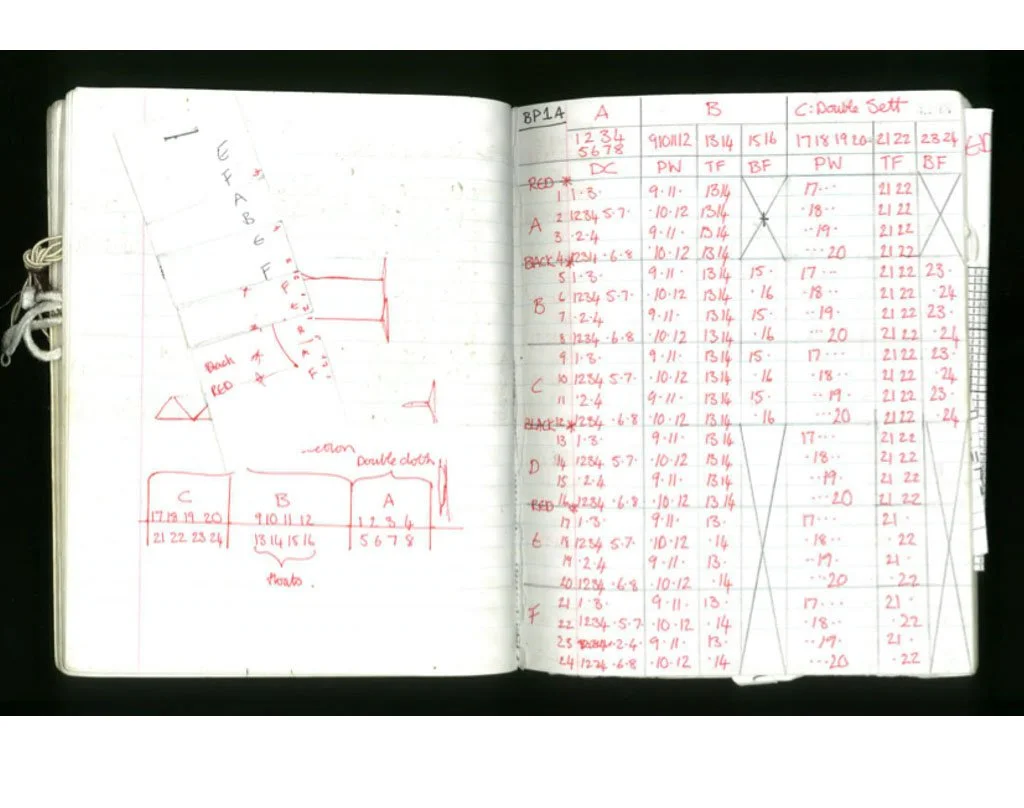 E
F
A
B
E
F
F
E
Back
RED
F
Double cloth
C B A
17 18 19 20 9 10 11 12 1 2 3 4
21 22 23 24 13 14 15 16 5 6 7 8
floats.
BP1A A B C: Double Sett
1 2 3 4 9 10 11 12 13 14 15 16 17 18 19 20 21 22 23 24
5 6 7 8
DC PW TF BF PW TF BF
RED *
1 1·3· 9·11· 13 14 17··· 21 22
A 2 1234 5·7· ·10·12 13 14 ·18·· 21 22
3 ·2·4 9·11· 13 14 ··19· 21 22
BACK 4 1234 ·6·8 ·10·12 13 14 ···20 21 22
5 1·3· 9·11· 13 14 15· 17··· 21 22 23·
B 6 1234 5·7· ·10·12 13 14 ·16 ·18·· 21 22 ·24
7 ·2·4 9·11· 13 14 15· ··19· 21 22 23·
8 1234 ·6·8 ·10·12 13 14 ·16 ···20 21 22 ·24
9 1·3· 9·11· 13 14 15· 17··· 21 22 23·
C 10 1234 5·7· ·10·12 13 14 ·16 ·18·· 21 22 ·24
11 ·2·4 9·11· 13 14 15· ··19 21 22 23·
BLACK 12 1234 ·6·8 ·10·12 13 14 ·16 ···20 21 22 ·24
13 1·3· 9·11· 13 14 17··· 21 22
D 14 1234 5·7· ·10·12 13 14 ·18·· 21 22
15 ·2·4 9·11· 13 14 ··19· 21 22
RED 16 1234 ·6·8 ·10·12 13 14 ···20 21 22
17 1·3· 9·11· 13· 17··· 21·
E 18 1234 5·7· ·10·12 ·14 ·18·· ·22
19 ·2·4 9·11· 13· ··19· 21·
20 1234 ·6·8 ·10·12 ·14 ···20 ·22
F 21 1·3· 9·11· 13· 17··· 21·
22 1234 5·7· ·10·12 ·14 ·18·· ·22
23 ·2·4 9·11· 13· ··19· 21·
24 1234 ·6·8 ·10·12 ·14 ···20 ·22